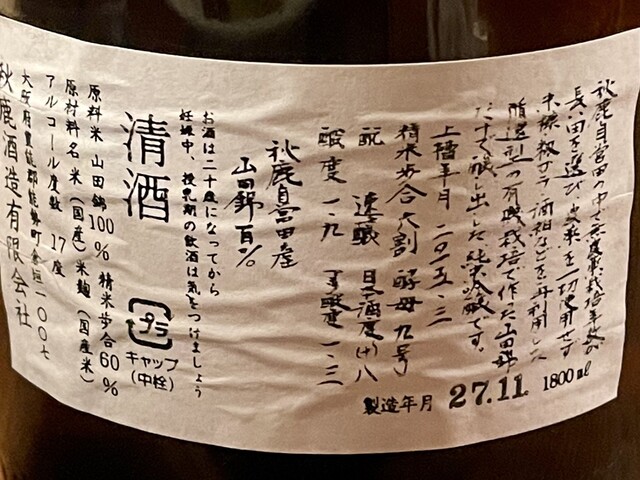 秋鹿自営田の中で無農薬栽培年数が
長い田を選び農薬を一切使用せず
米糠籾ガラ酒粕などを再利用した
循環型の有機栽培で作った山田錦
だけで醸し出した純米吟醸です。
上槽年月 二〇一五、三
精米歩合六割 酵母九号
酛 速醸 日本酒度(+)八
酸度 一、九 アミノ酸度 一、三
秋鹿自営田産
山田錦百%
お酒は二十歳になってから
妊娠中、授乳期の飲酒は気をつけましょう
清酒
プラ
キャップ
(中栓)
原料米 山田錦100% 精米歩合60%
原材料名 米(国産)米麹(国産米)
アルコール度数 17度
大阪府豊能郡能勢町倉垣一〇〇七
秋鹿酒造有限会社
製造年月 27.11. 1800ml